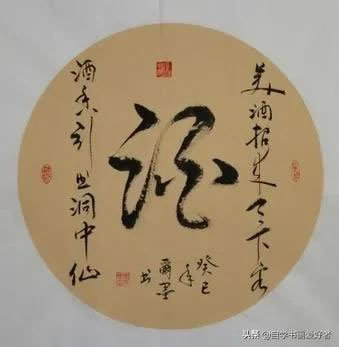 美酒招来天下客
酒
酒香引出洞中仙
癸巳
年
爾墨
书
头条 @自学书画爱好者